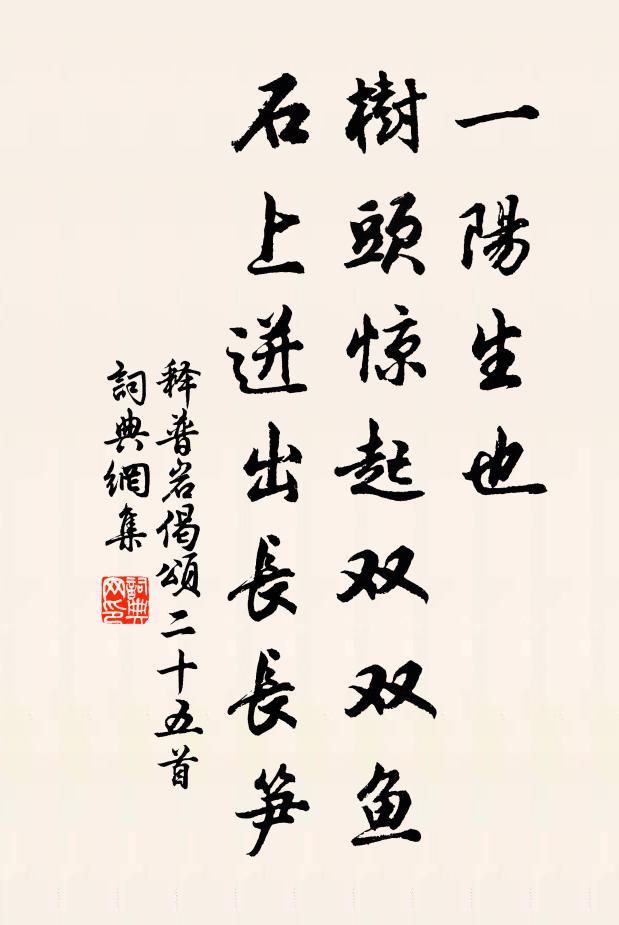 一陽生也
樹頭惊起双双鱼
石上迸出長長笋
释普岩偈頌二十五首
詞典網集
詞典网印